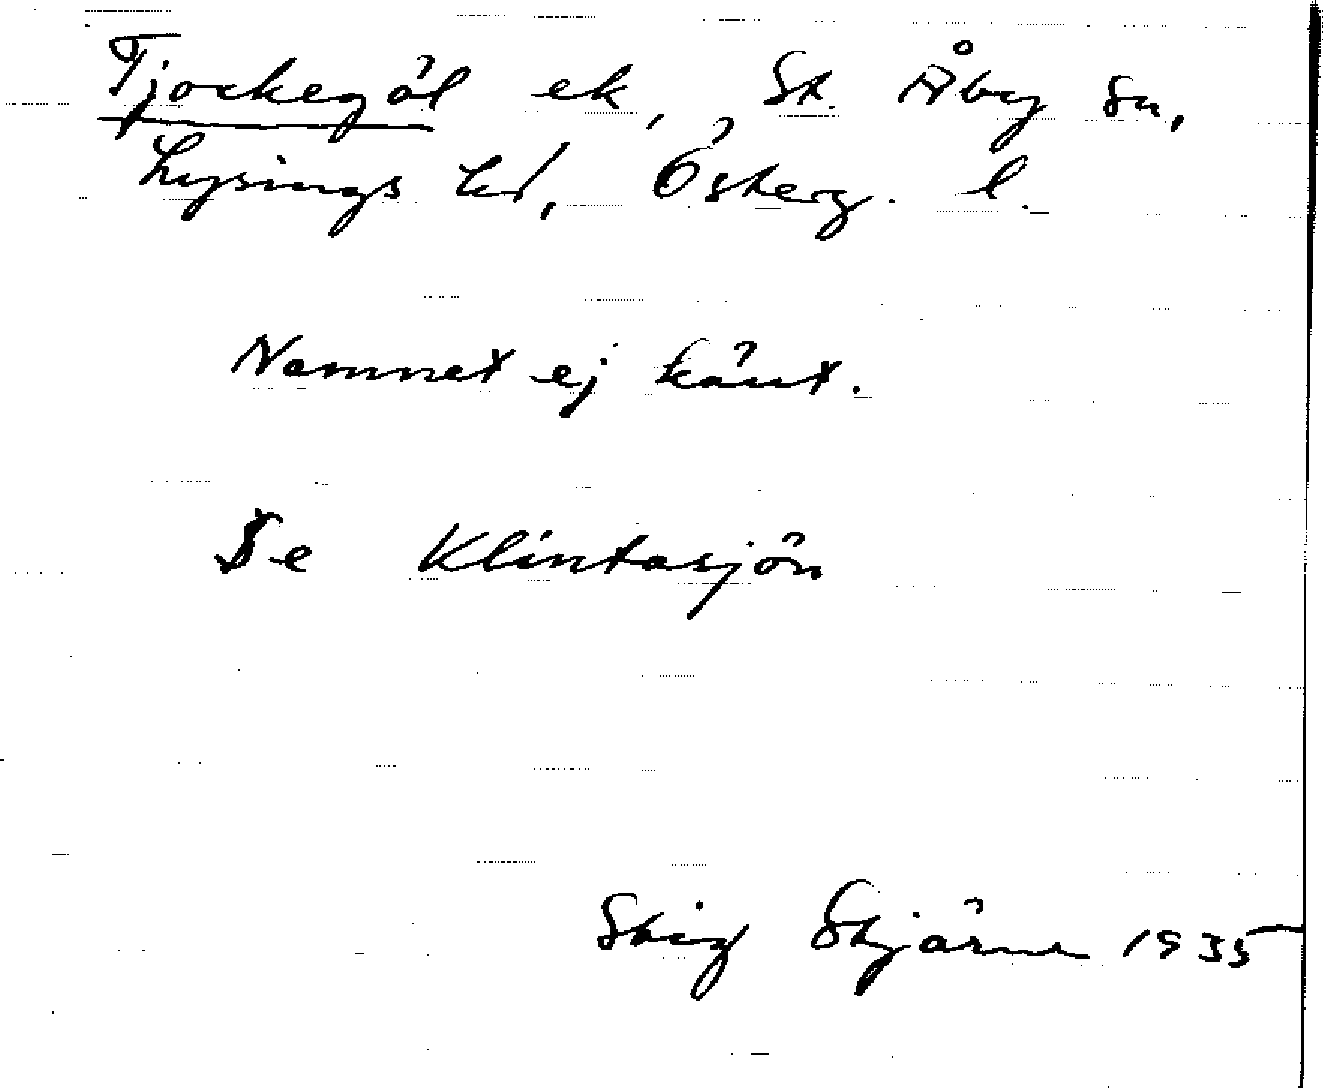 Tjockegöl ek, St. Åby sn,
Lysings hd, Österg. l.
Namnet ej känt.
Se Klintasjön
Stig Stjärne 1935